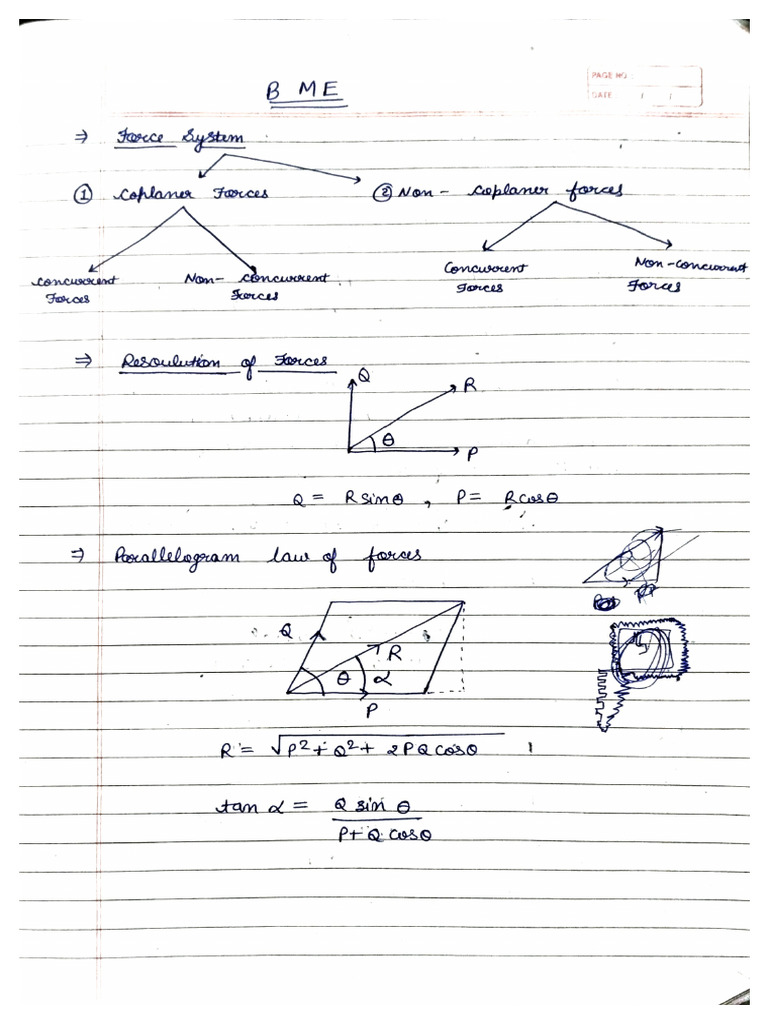 B ME
PAGE NO :
DATE / /
⇒ Force System
① Coplaner Forces ② Non - Coplaner forces
Concurrent Forces
Non - concurrent Forces
Concurrent Forces
Non - concurrent Forces
⇒ Resoulution of Forces
Q
R
θ
P
Q = R sinθ , P = R cosθ
⇒ Parallelogram law of forces
Q
R
θ α
P
R = √P² + Q² + 2PQ cosθ
tan α = Q sin θ
P + Q cosθ